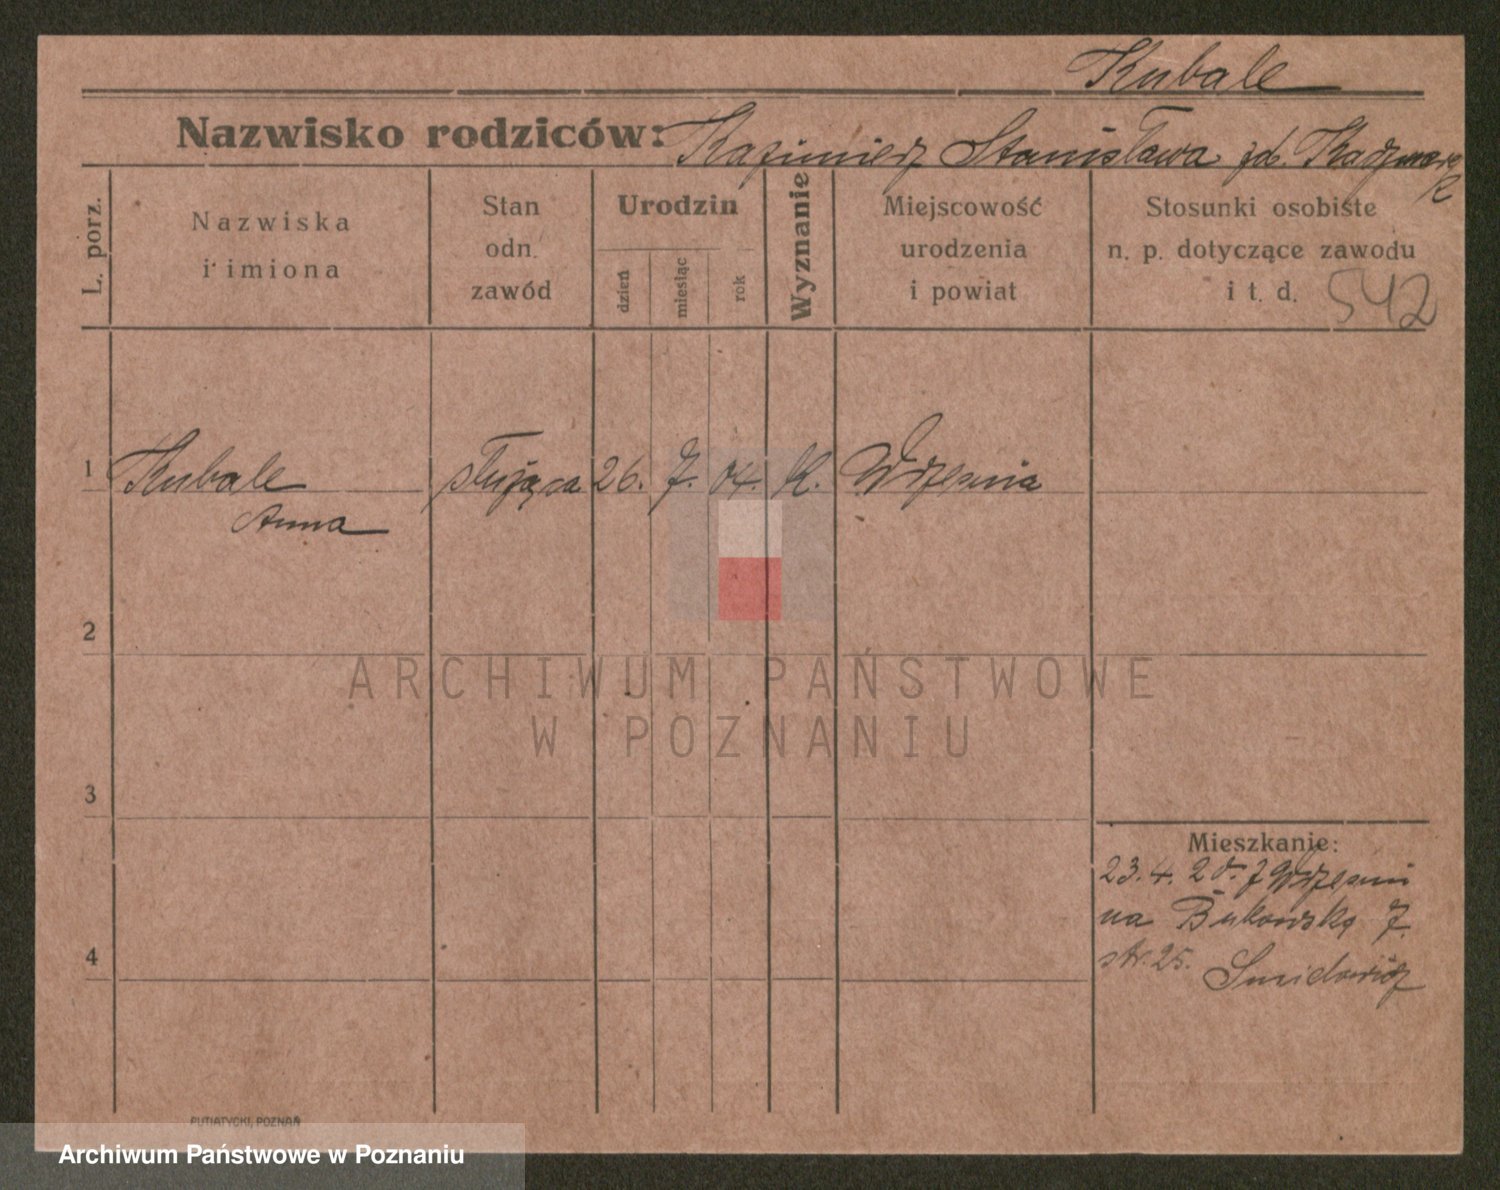 Kubale
Nazwisko rodziców: Kazimierz Stanisława zd. Kaczmarek
L. porz.
Nazwiska
i imiona
Stan
odn.
zawód
Urodzin
dzień
miesiąc
rok
Wyznanie
Miejscowość
urodzenia
i powiat
Stosunki osobiste
n. p. dotyczące zawodu
i t. d. 542
1 Kubale służąca 26. 7. 04. K. Września
Anna
2
ARCHIWUM PAŃSTWOWE
W POZNANIU
3
Mieszkanie:
23.4. z Wrześni
na Bukowską 7.
4
str. 25.
PUTIATYCKI, POZNAŃ
Archiwum Państwowe w Poznaniu